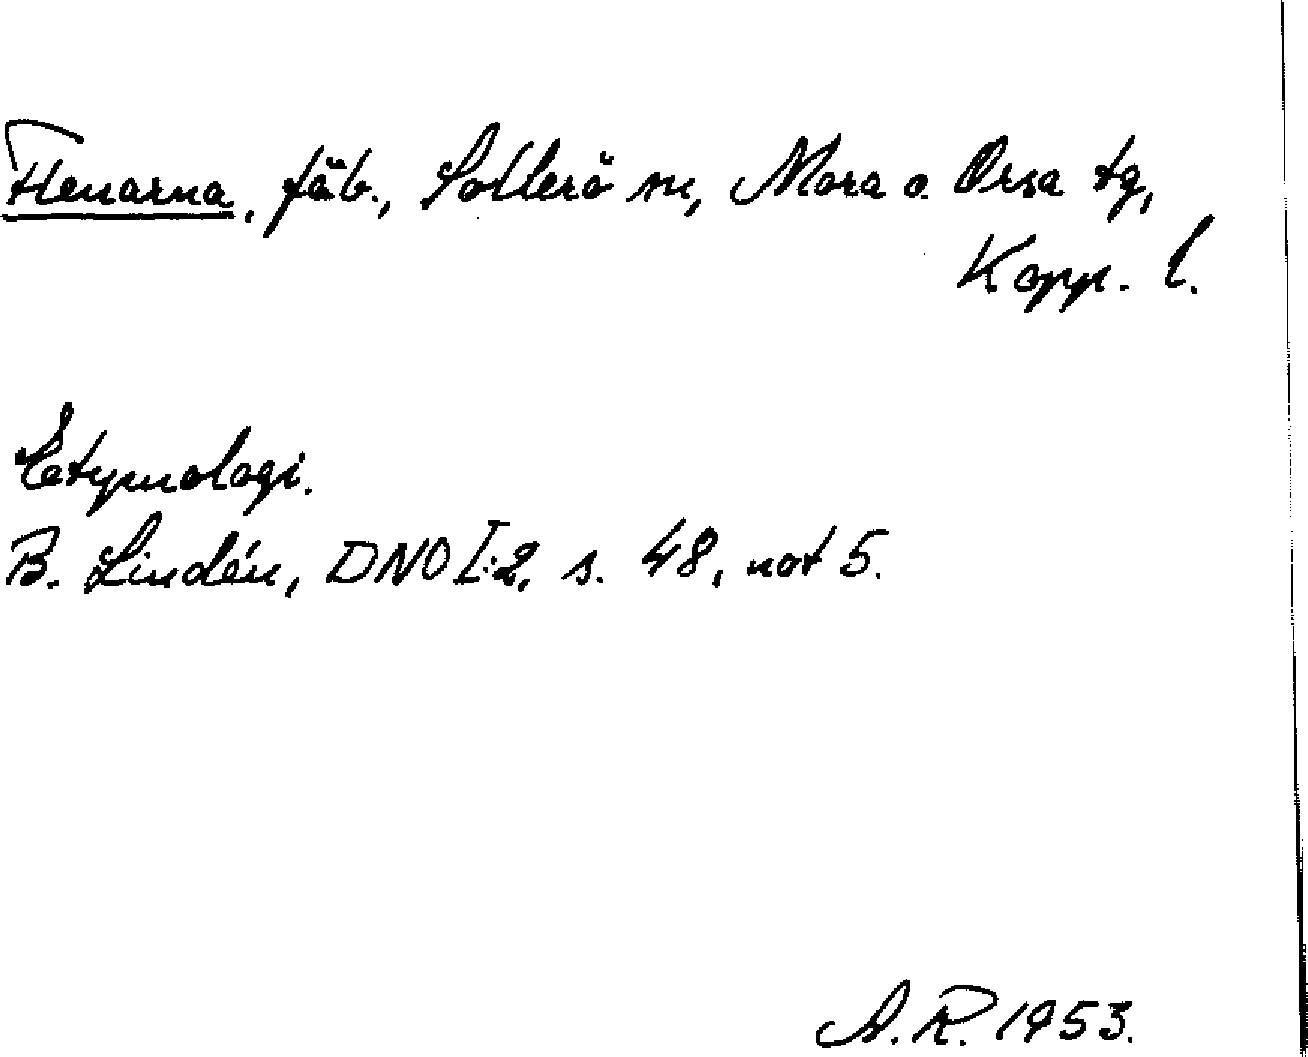 Flenarna, fäb., Sollerö sn, Mora o. Orsa tg,
Kopp. l.
Etymologi.
B. Lindén, DNO I:2, s. 48, not 5.
A. R. 1953.